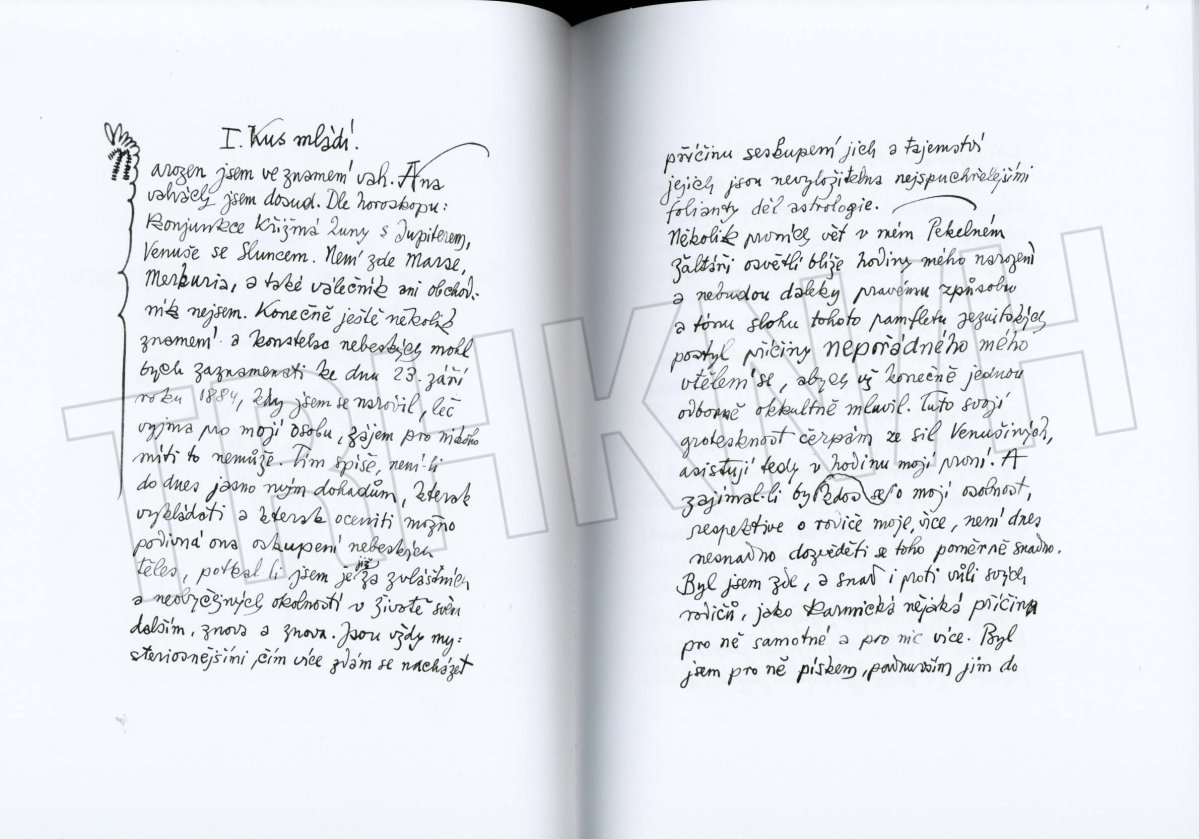 I. Kus mládí.
Narozen jsem ve znamení vah. A na
vahách jsem dosud. Dle horoskopu:
Konjunkce Křižmá Luny s Jupiterem,
Venuše se Sluncem. Není zde Marse,
Merkuria, a také válečník ani obchod-
ník nejsem. Konečně ještě několik
znamení a konstelsa nebeských mohl
bych zaznamenati ke dnu 23. září
roku 1884, kdy jsem se narodil, leč
vyjma pro mojí osobu, zájem pro nikoho
míti to nemůže. Tím spíše, není-li
do dnes jasno mým dohadům, kterak
vykládati a kterak oceniti možno
podivná ona oskupení nebeských
těles, potkal li jsem je již za zvláštních
a neobyčejných okolností v životě svém
dalším, znova a znova. Jsou vždy my-
steriosnějšími, čím více zdám se nacházet
příčinu seskupení jich a tajemství
jejich jsou nevyložitelna nejspuchřelejšími
folianty děl astrologie.
Několik prvních vět v něm Pekelném
žaltáři osvětlí blíže hodiny mého narození
a nebudou daleky pravému způsobu
a tónu slohu tohoto pamfletu jezuitských
postyl příčiny nepořádného mého
vtělení se, abych už konečně jednou
odborně okkultně mluvil. Tuto svojí
grotesknost čerpám ze sil Venušiných,
asistují tedy v hodinu mojí první. A
zajímal-li by kdos se o mojí osobnost,
respektive o rodiče moje, více, není dnes
nesnadno dozvěděti se toho poměrně snadno.
Byl jsem zde, a snad i proti vůli svých
rodičů, jako karmická nějaká příčina
pro ně samotné a pro nic více. Byl
jsem pro ně pískem, jim do
TRHKNIH